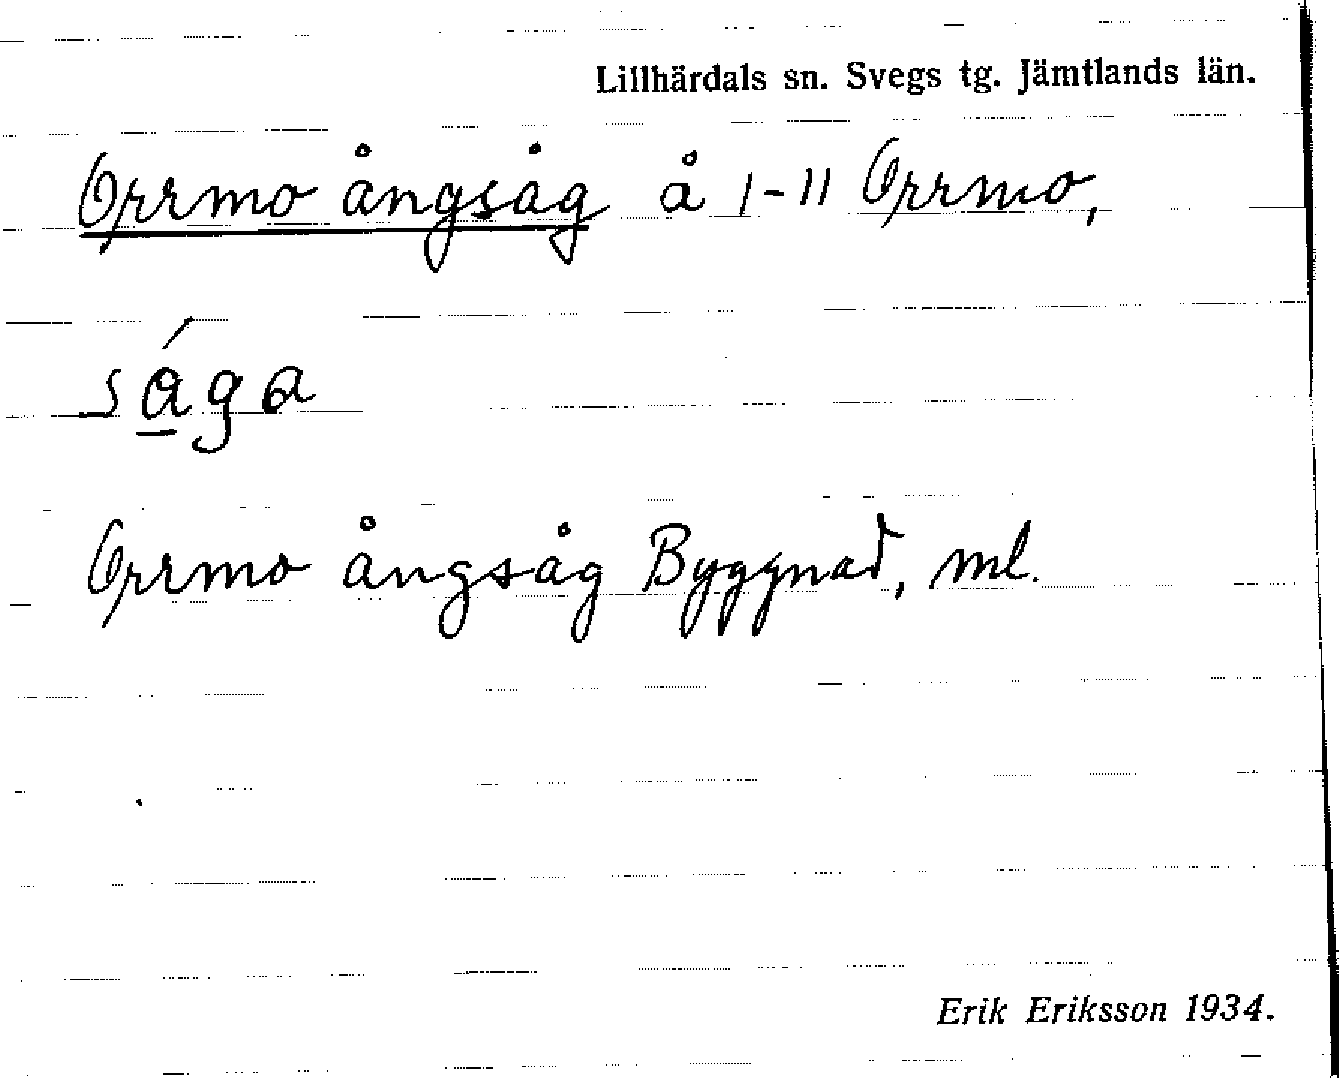 Lillhärdals sn. Svegs tg. Jämtlands län.
Orrmo ångsåg å 1-11 Orrmo,
ság̱a
Orrmo ångsåg Byggnad, ml.
Erik Eriksson 1934.